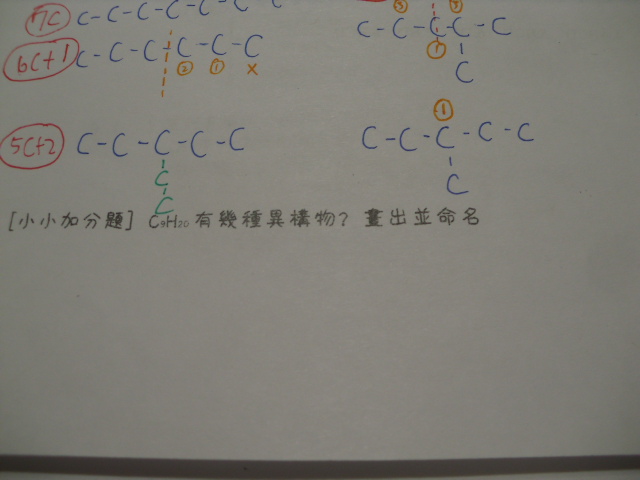 7C C-C-C-C-C-C-C
6C+1 C-C-C-C-C-C
② ① x
③ ②
C-C-C-C-C
①
C
5C+2 C-C-C-C-C
C
C
①
C-C-C-C-C
C
[小小加分題] C₉H₂₀有幾種異構物? 畫出並命名